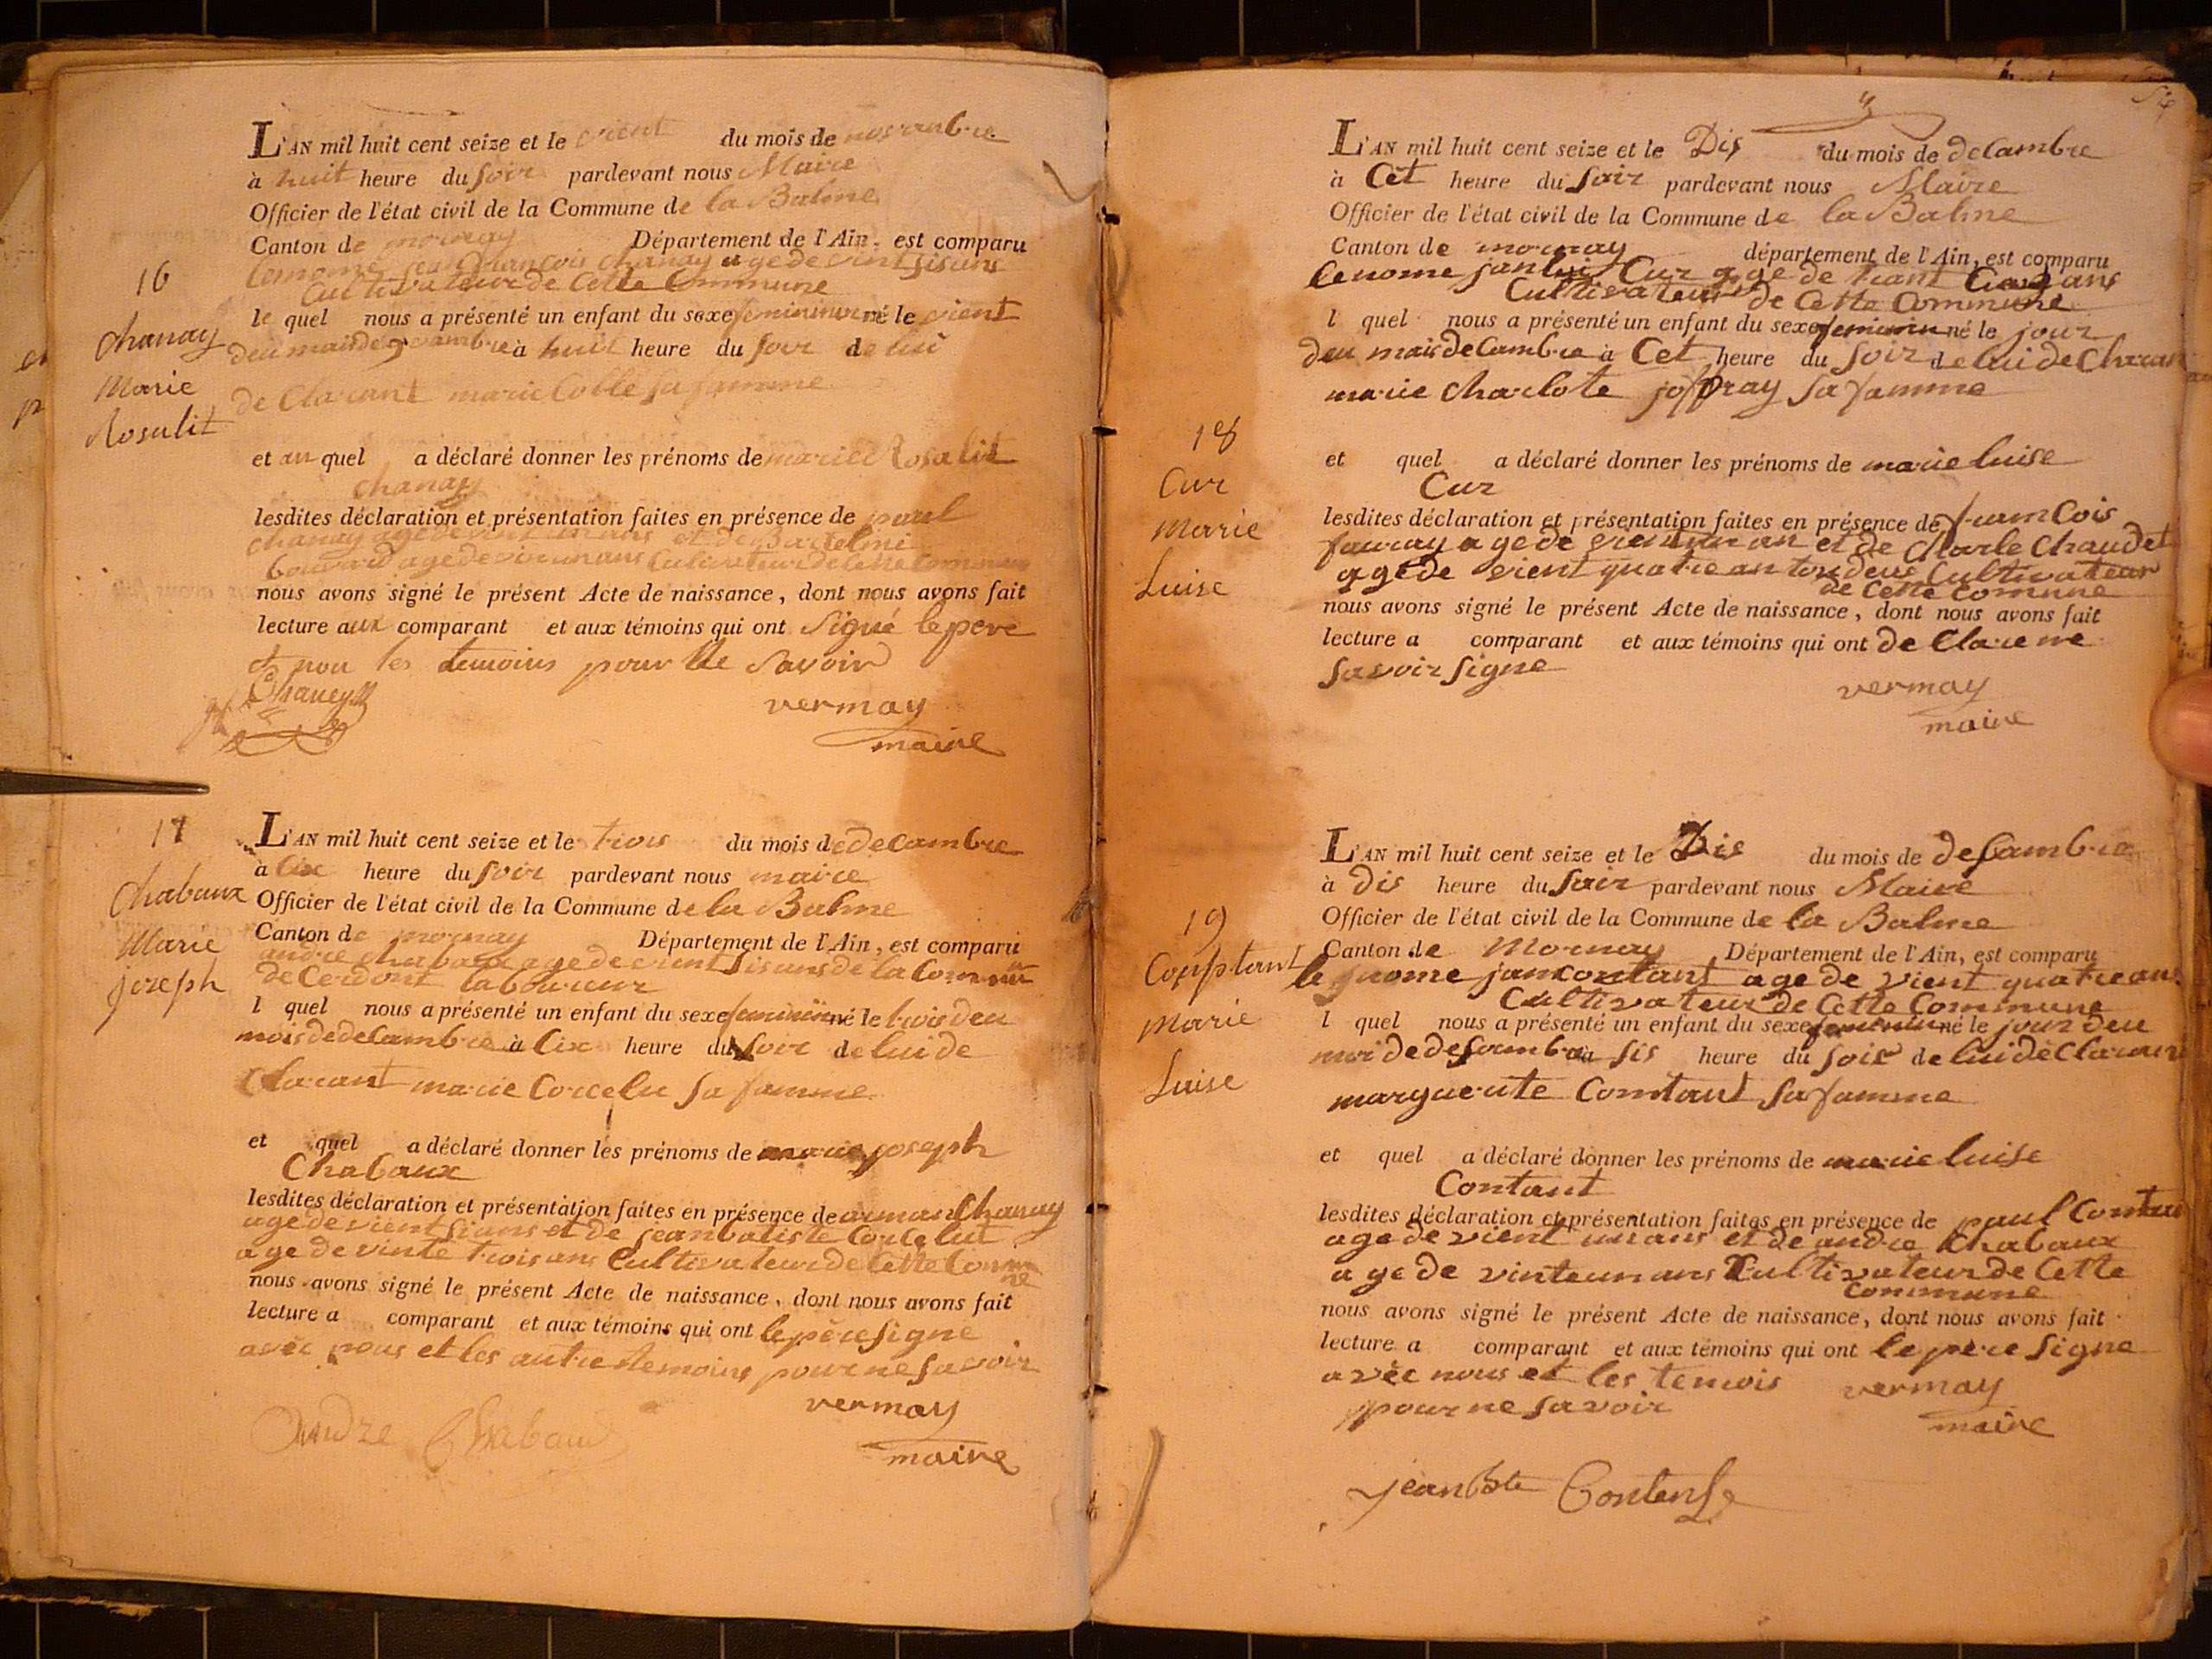 16
chanay
Marie
Rosalit
L'AN mil huit cent seize et le vient du mois de novanbre
à huit heure du soir pardevant nous Maire
Officier de l'état civil de la Commune de la Balme
Canton de mornay Département de l'Ain, est comparu
lenomé jean François chanay agede vint sis ans
Cultivateur de Cette Commune
le quel nous a présenté un enfant du sexe feminin né le vient
deu mois de novambre à huit heure du soir de lui
de Clarant marie Collé sa famme
et au quel a déclaré donner les prénoms de marie Rosalit
chanay
lesdites déclaration et présentation faites en présence de paul
chanay agede vint un ans et de Bartelmi
bouvard agede vin un ans Cultivateur de Cette Commune
nous avons signé le présent Acte de naissance, dont nous avons fait
lecture aux comparant et aux témoins qui ont Signé le pere
et non les temoins pour ne Savoir
Chaney
vermay
maire
17
Chabaux
Marie
joseph
L'AN mil huit cent seize et le trois du mois de decambre
à Cix heure du soir pardevant nous maire
Officier de l'état civil de la Commune de la Balme
Canton de mornay Département de l'Ain, est comparu
andré chabaux agede vient sis ans de la Commune
de Cerdont laboureur
l quel nous a présenté un enfant du sexe feminin né le trois deu
mois de decambre à Cix heure du soir de lui de
Clarant marie Corcelu sa famme
et quel a déclaré donner les prénoms de marie joseph
Chabaux
lesdites déclaration et présentation faites en présence de arman Chanay
agede vient sis ans et de jean batiste Corcelut
agede vinte trois ans Cultivateur de Cette Comm
ne
nous avons signé le présent Acte de naissance, dont nous avons fait
lecture a comparant et aux témoins qui ont le père signe
avec nous et les autre temoins pour ne savoir
vermay
maire
Andre Chabaud
L'AN mil huit cent seize et le Dis du mois de decambre
à Cet heure du soir pardevant nous Maire
Officier de l'état civil de la Commune de la Balme
Canton de mornay département de l'Ain, est comparu
le nome jan lui Cur agede trant Cinq ans
Cultivateur de Cette Commune
l quel nous a présenté un enfant du sexe feminin né le jour
deu mois decambre à Cet heure du soir de lui de Claran
marie charlote joffray sa famme
18
Cur
Marie
Luise
et quel a déclaré donner les prénoms de marie luise
Cur
lesdites déclaration et présentation faites en présence de framCois
fauray agede vient un an et de Charle Chaudet
agede vient quatre an tou deue Cultivateur
de Cette Comune
nous avons signé le présent Acte de naissance, dont nous avons fait
lecture a comparant et aux témoins qui ont de Clare ne
savoir signe
vermay
maire
19
Conptant
Marie
Luise
L'AN mil huit cent seize et le Dis du mois de desambre
à dis heure du soir pardevant nous Maire
Officier de l'état civil de la Commune de la Balme
Canton de Mornay Département de l'Ain, est comparu
le nome jan contant agede vient quatre ans
Cultivateur de Cette Commune
l quel nous a présenté un enfant du sexe feminin né le jour deu
moi de desambre à sis heure du soir de lui de Claran
marguerite Comtant sa famme
et quel a déclaré donner les prénoms de marie luise
Contant
lesdites déclaration et présentation faites en présence de paul Contan
agede vient un ans et de andre Chabaux
agede vinteun ans Cultivateur de Cette
Commune
nous avons signé le présent Acte de naissance, dont nous avons fait
lecture a comparant et aux témoins qui ont le père signe
avec nous et les temois
pour ne savoir
vermay
maire
jean Bte Contense